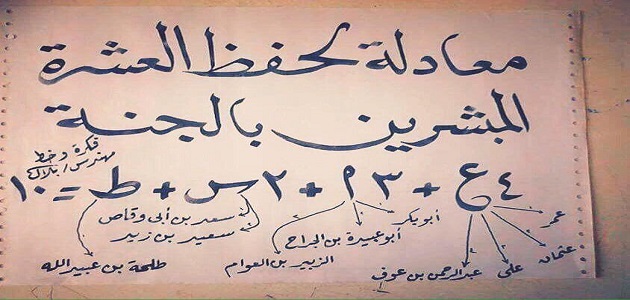 معادلة لحفظ العشرة
المبشرين بالجنة
فكرة وخط
مهندس / بلال
٤ع + ٣أ + ٢س + ط = ١٠
عمر
عثمان
علي
عبدالرحمن بن عوف
أبوبكر
أبوعبيدة بن الجراح
الزبير بن العوام
سعد بن أبي وقاص
سعيد بن زيد
طلحة بن عبيد الله